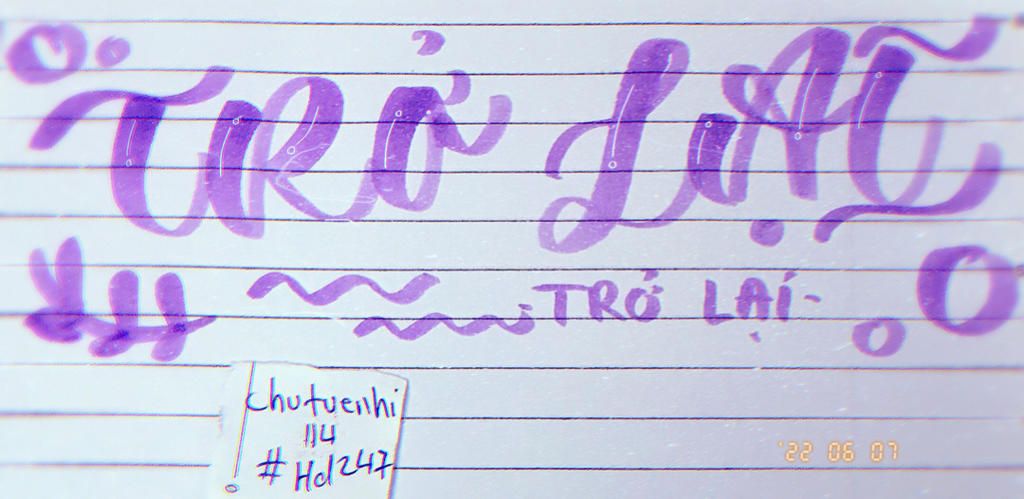 TRỞ LẠI
TRỞ LẠI
chutuenhi
114
# Hd247
'22 06 07